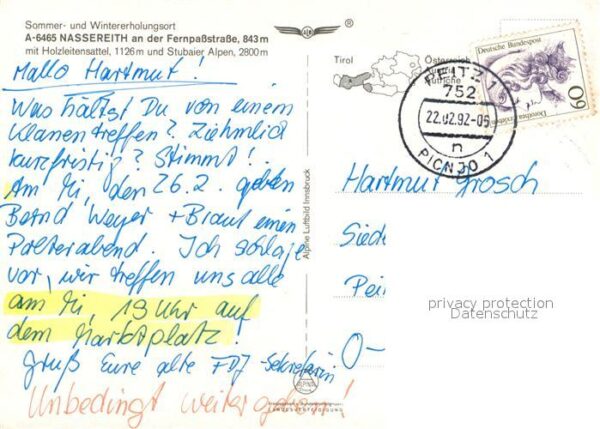 Sommer- und Wintererholungsort
A-6465 NASSEREITH an der Fernpaßstraße, 843 m
mit Holzleitensattel, 1126 m und Stubaier Alpen, 2800 m
®
Tirol
Österreich
Autriche
Deutsche Bundespost
60
752
22.02.92-
n
Hallo Hartmut!
Was hältst Du von einem
Klassentreffen? Ziehmlich
kurzfristig? Stimmt!
Am Mi, den 26.2. geben
Bernd Weyer + Braut einen
Polterabend. Ich schlage
vor, wir treffen uns alle
am Mi, 19 Uhr auf
dem Marktplatz!
Gruß Eure alte FDJ-Sekretärin
Unbedingt weitergeben!
Alpine Luftbild Innsbruck
Hartmut Grosch
Siede
Pei
O-
privacy protection
Datenschutz